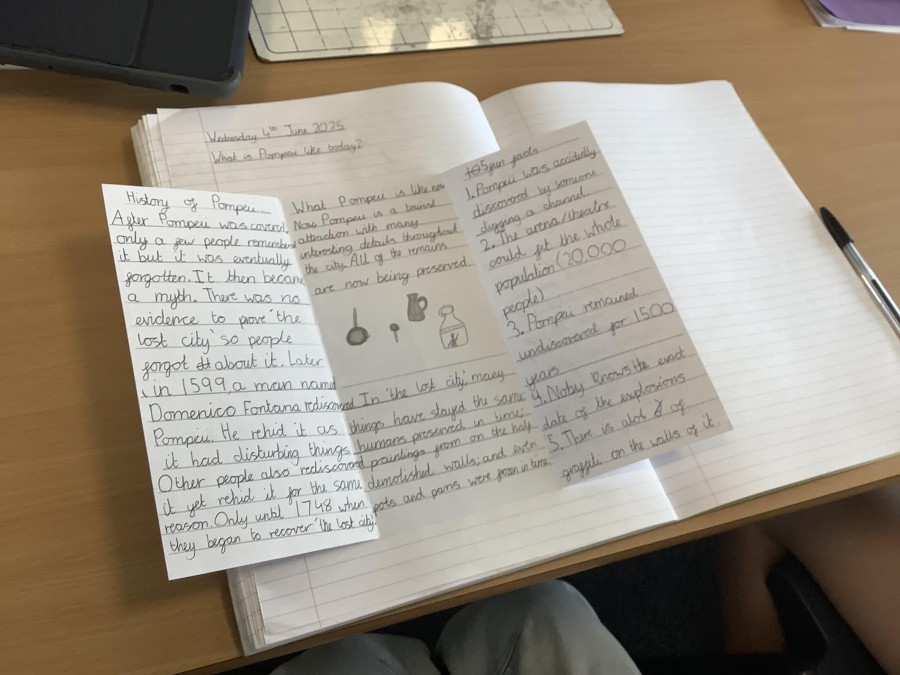 Wednesday 4th June 2025
What is Pompeii like today?
History of Pompeii
After Pompeii was covered,
only a few people remembered
it but it was eventually
forgotten. It then became
a myth. There was no
evidence to prove 'the
lost city' so people
forgot about it. Later
in 1599, a man named
Domenico Fontana rediscovered
Pompeii. He rehid it as
it had disturbing things.
Other people also rediscovered
it yet rehid it for the same
reason. Only until 1748 when
they began to recover 'the lost city'.
What Pompeii is like now
Now Pompeii is a tourist
attraction with many
interesting details throughout
the city. All of the remains
are now being preserved.
In 'the lost city' many
things have stayed the same:
humans preserved in time;
paintings from on the half
demolished walls; and even
pots and pans were frozen in time
5 fun facts
1. Pompeii was accidently
discovered by someone
digging a channel
2. The arena/theatre
could fit the whole
population (20,000
people)
3. Pompeii remained
undiscovered for 1500
years
4. Noby knows the exact
date of the explosions
5. There is alot of
graffiti on the walls of it.